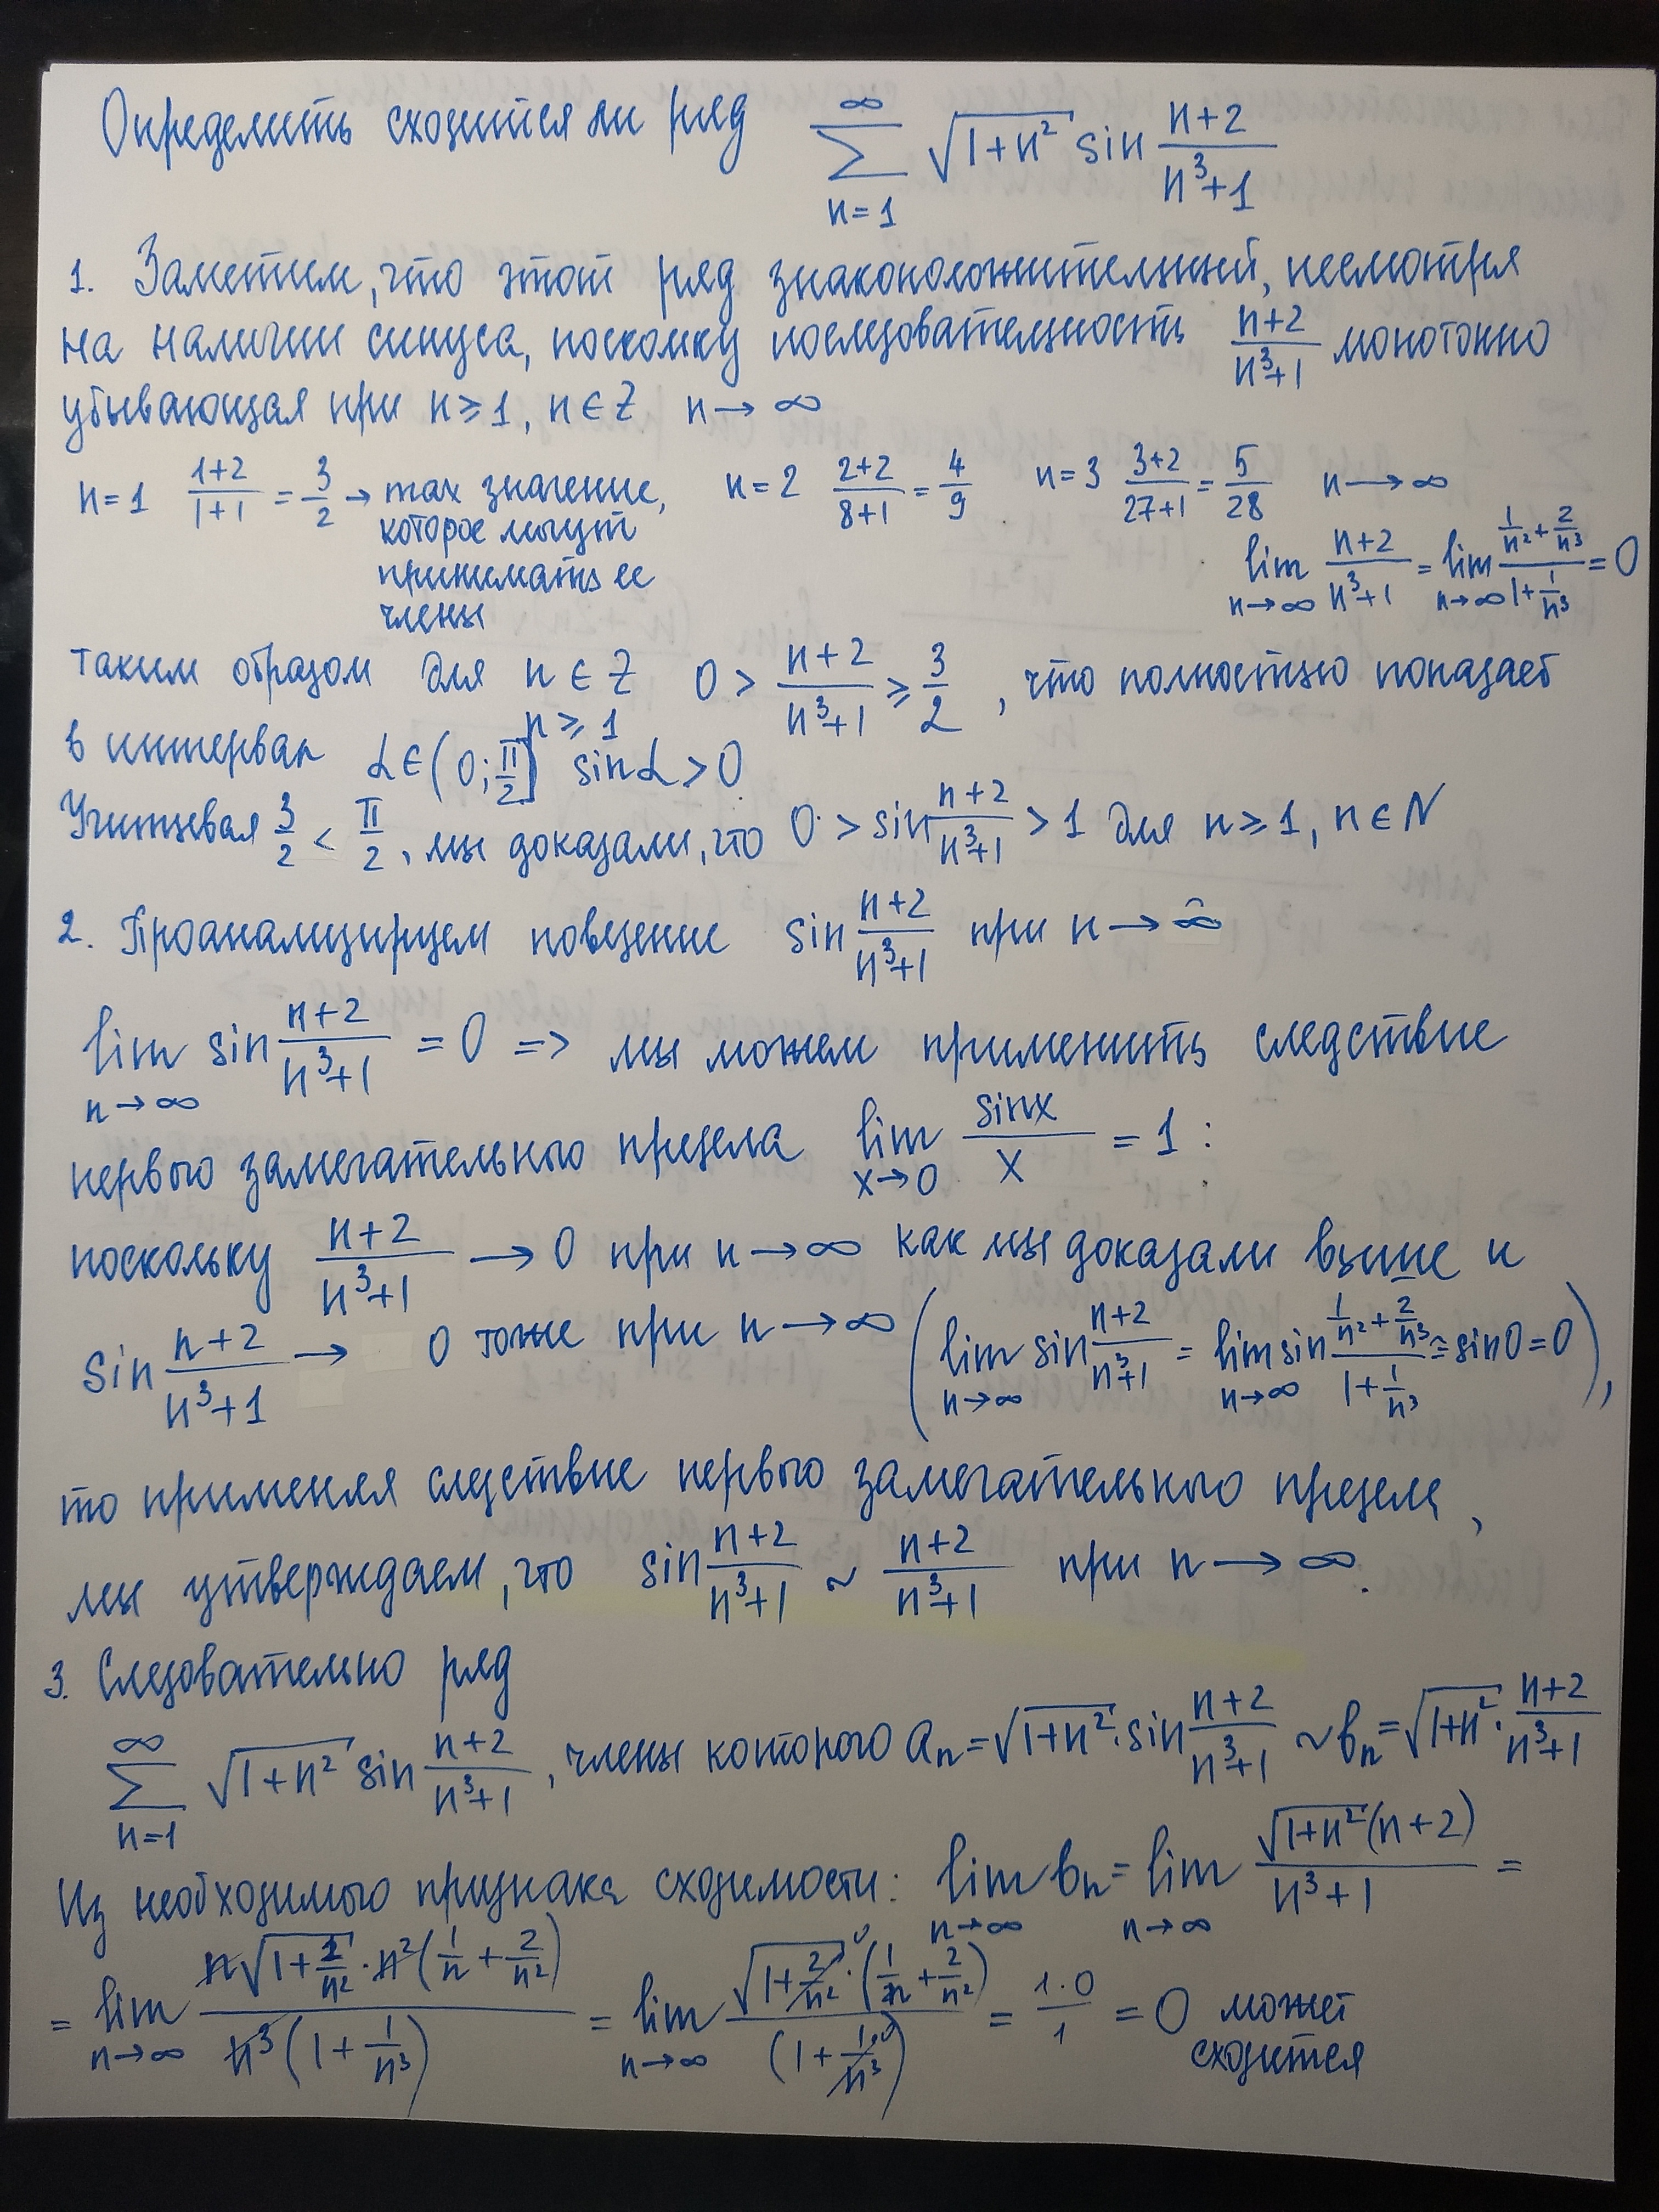 Определить сходится ли ряд ∑_{n=1}^{∞} √(1+n²) sin (n+2)/(n³+1)
1. Заметим, что этот ряд знакоположительный, несмотря
на наличии синуса, поскольку последовательность (n+2)/(n³+1) монотонно
убывающая при n ≥ 1, n ∈ Z n → ∞
n = 1 (1+2)/(1+1) = 3/2 → max значение, n = 2 (2+2)/(8+1) = 4/9 n = 3 (3+2)/(27+1) = 5/28 n → ∞
которое могут
принимать ее
члены
lim_{n→∞} (n+2)/(n³+1) = lim_{n→∞} (1/n² + 2/n³)/(1 + 1/n³) = 0
таким образом для n ∈ Z n ≥ 1 0 > (n+2)/(n³+1) ≥ 3/2, что полностью попадает
в интервал α ∈ (0; π/2] sin α > 0
Учитывая 3/2 < π/2, мы доказали, что 0 > sin (n+2)/(n³+1) > 1 для n ≥ 1, n ∈ N
2. Проанализируем поведение sin (n+2)/(n³+1) при n → ∞
lim_{n→∞} sin (n+2)/(n³+1) = 0 => мы можем применить следствие
первого замечательного предела lim_{x→0} sin x / x = 1 :
поскольку (n+2)/(n³+1) → 0 при n → ∞ как мы доказали выше и
sin (n+2)/(n³+1) → 0 тоже при n → ∞ (lim_{n→∞} sin (n+2)/(n³+1) = lim_{n→∞} sin (1/n² + 2/n³)/(1 + 1/n³) = sin 0 = 0),
то применяя следствие первого замечательного предела,
мы утверждаем, что sin (n+2)/(n³+1) ~ (n+2)/(n³+1) при n → ∞.
3. Следовательно ряд
∑_{n=1}^{∞} √(1+n²) sin (n+2)/(n³+1), члены которого aₙ = √(1+n²) · sin (n+2)/(n³+1) ~ bₙ = √(1+n²) · (n+2)/(n³+1)
Из необходимого признака сходимости: lim_{n→∞} bₙ = lim_{n→∞} √(1+n²)(n+2)/(n³+1) =
= lim_{n→∞} n√(1+1/n²) · n²(1/n + 2/n²) / n³(1 + 1/n³) = lim_{n→∞} √(1+2/n²) · (1/n + 2/n²) / (1 + 1/n³) = 1·0/1 = 0 может
сходится